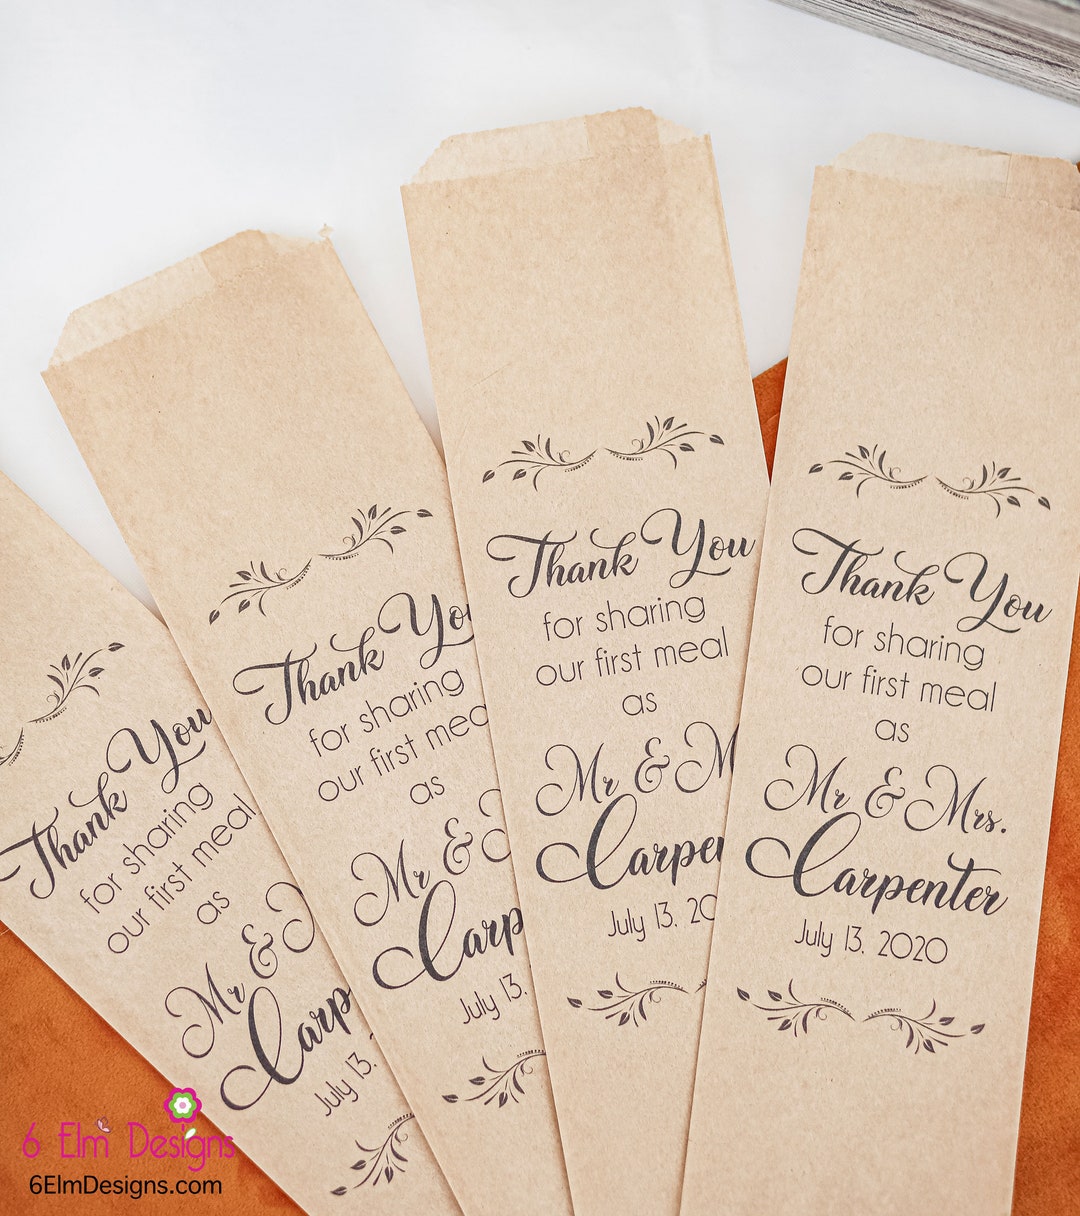 Thank You
for sharing
our first meal
as
Mr & Mrs.
Carpenter
July 13, 2020
Thank You
for sharing
our first meal
as
Mr & M
Carpe
July 13, 20
Thank Yo
for sharing
our first mea
as
Mr &
Carp
July 13,
Thank You
for sharing
our first meal
as
Mr &
Carp
July 13,
6 Elm Designs
6ElmDesigns.com